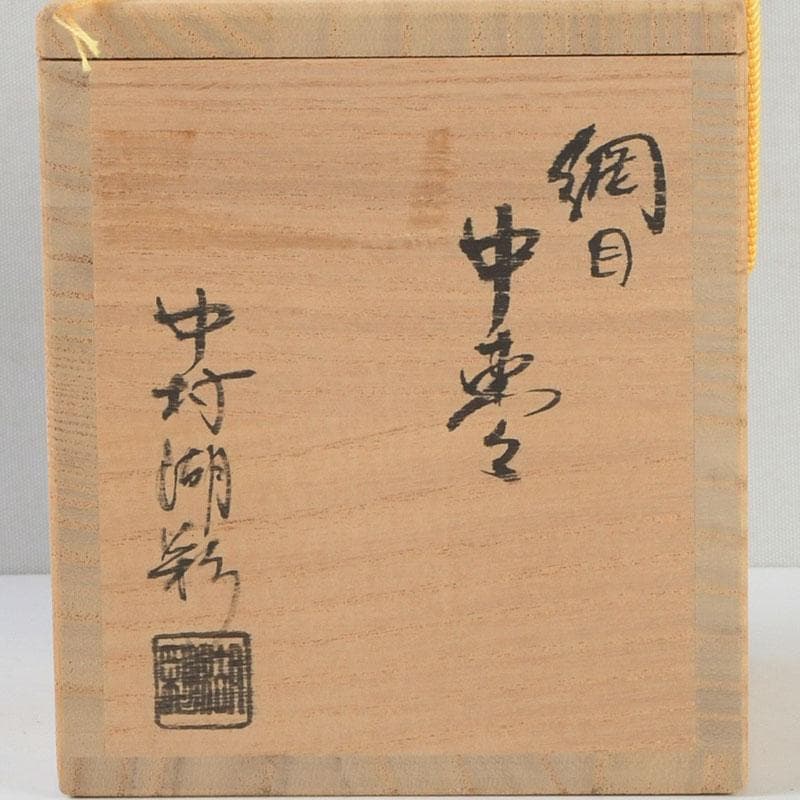 網目
中棗
中村湖彩